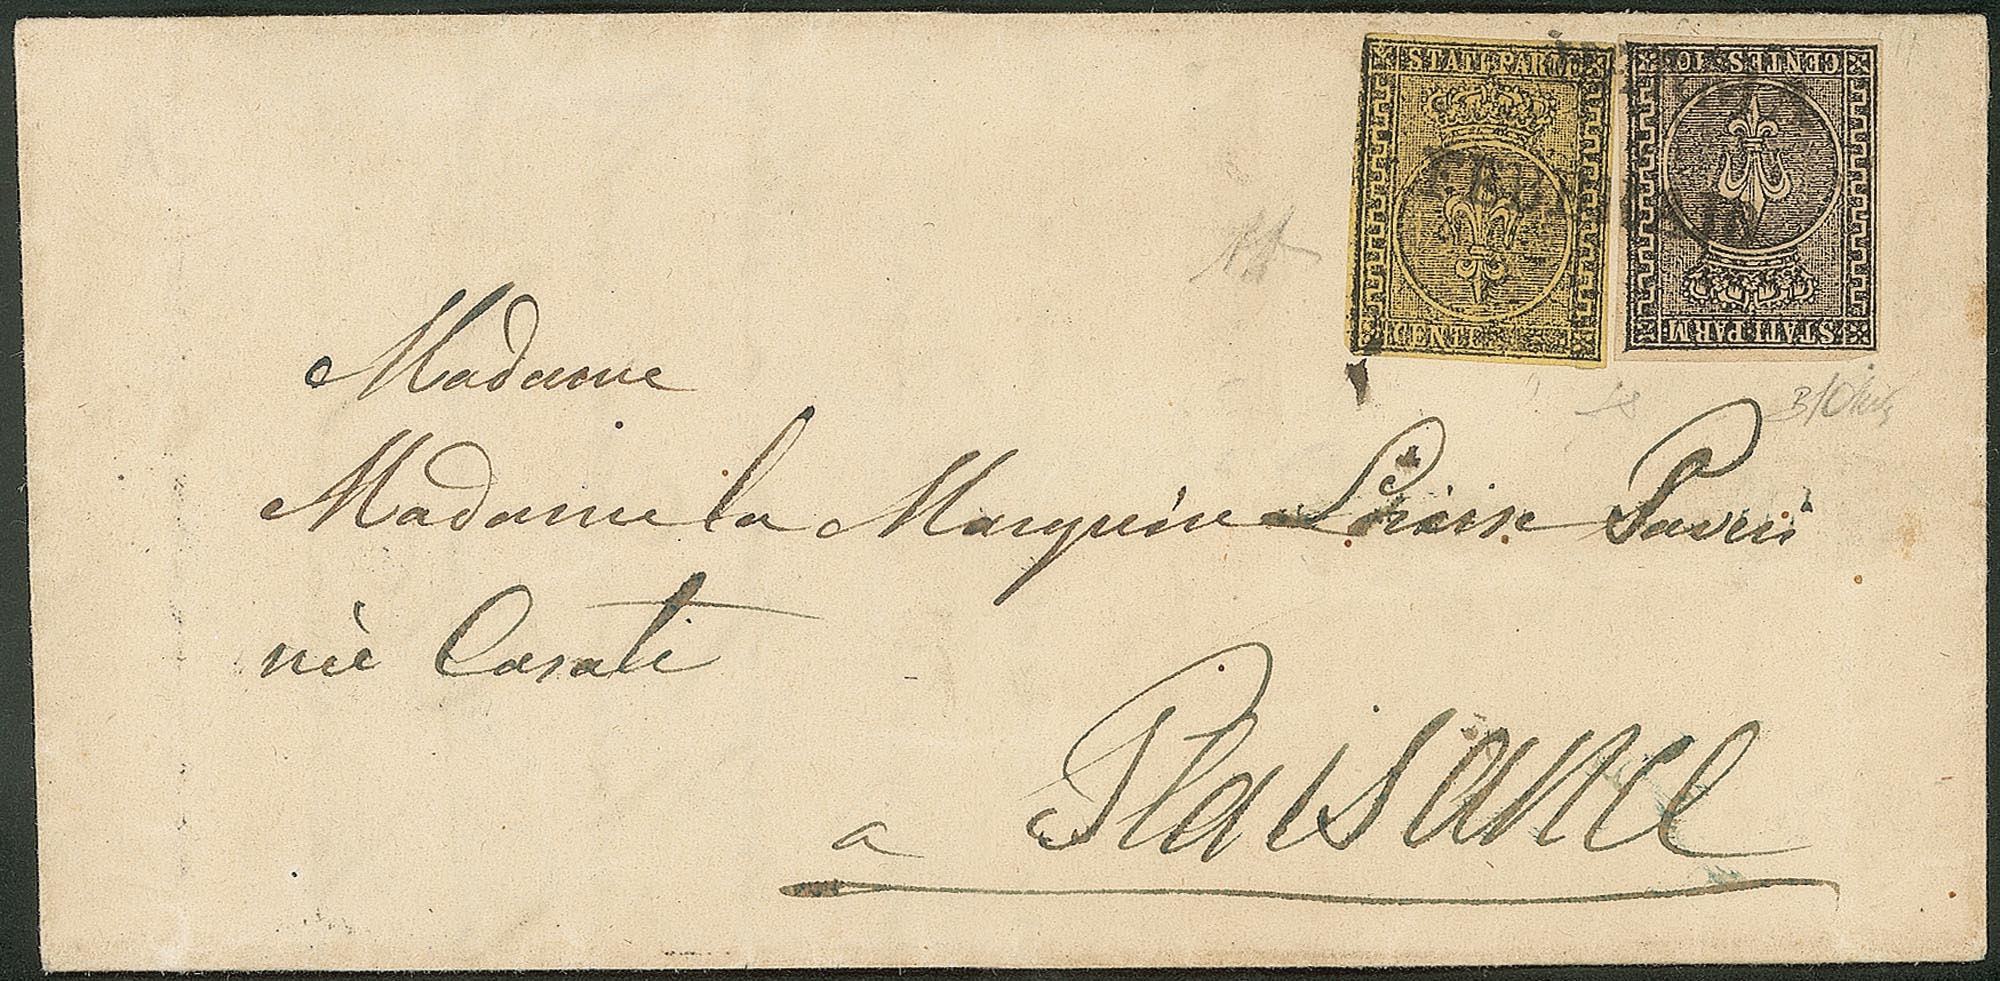 STATI PARM
CENTES
CENTES 10
STATI PARM
Madame
Madame la Marquise Louise Pavesi
née Casati
a Plaisance